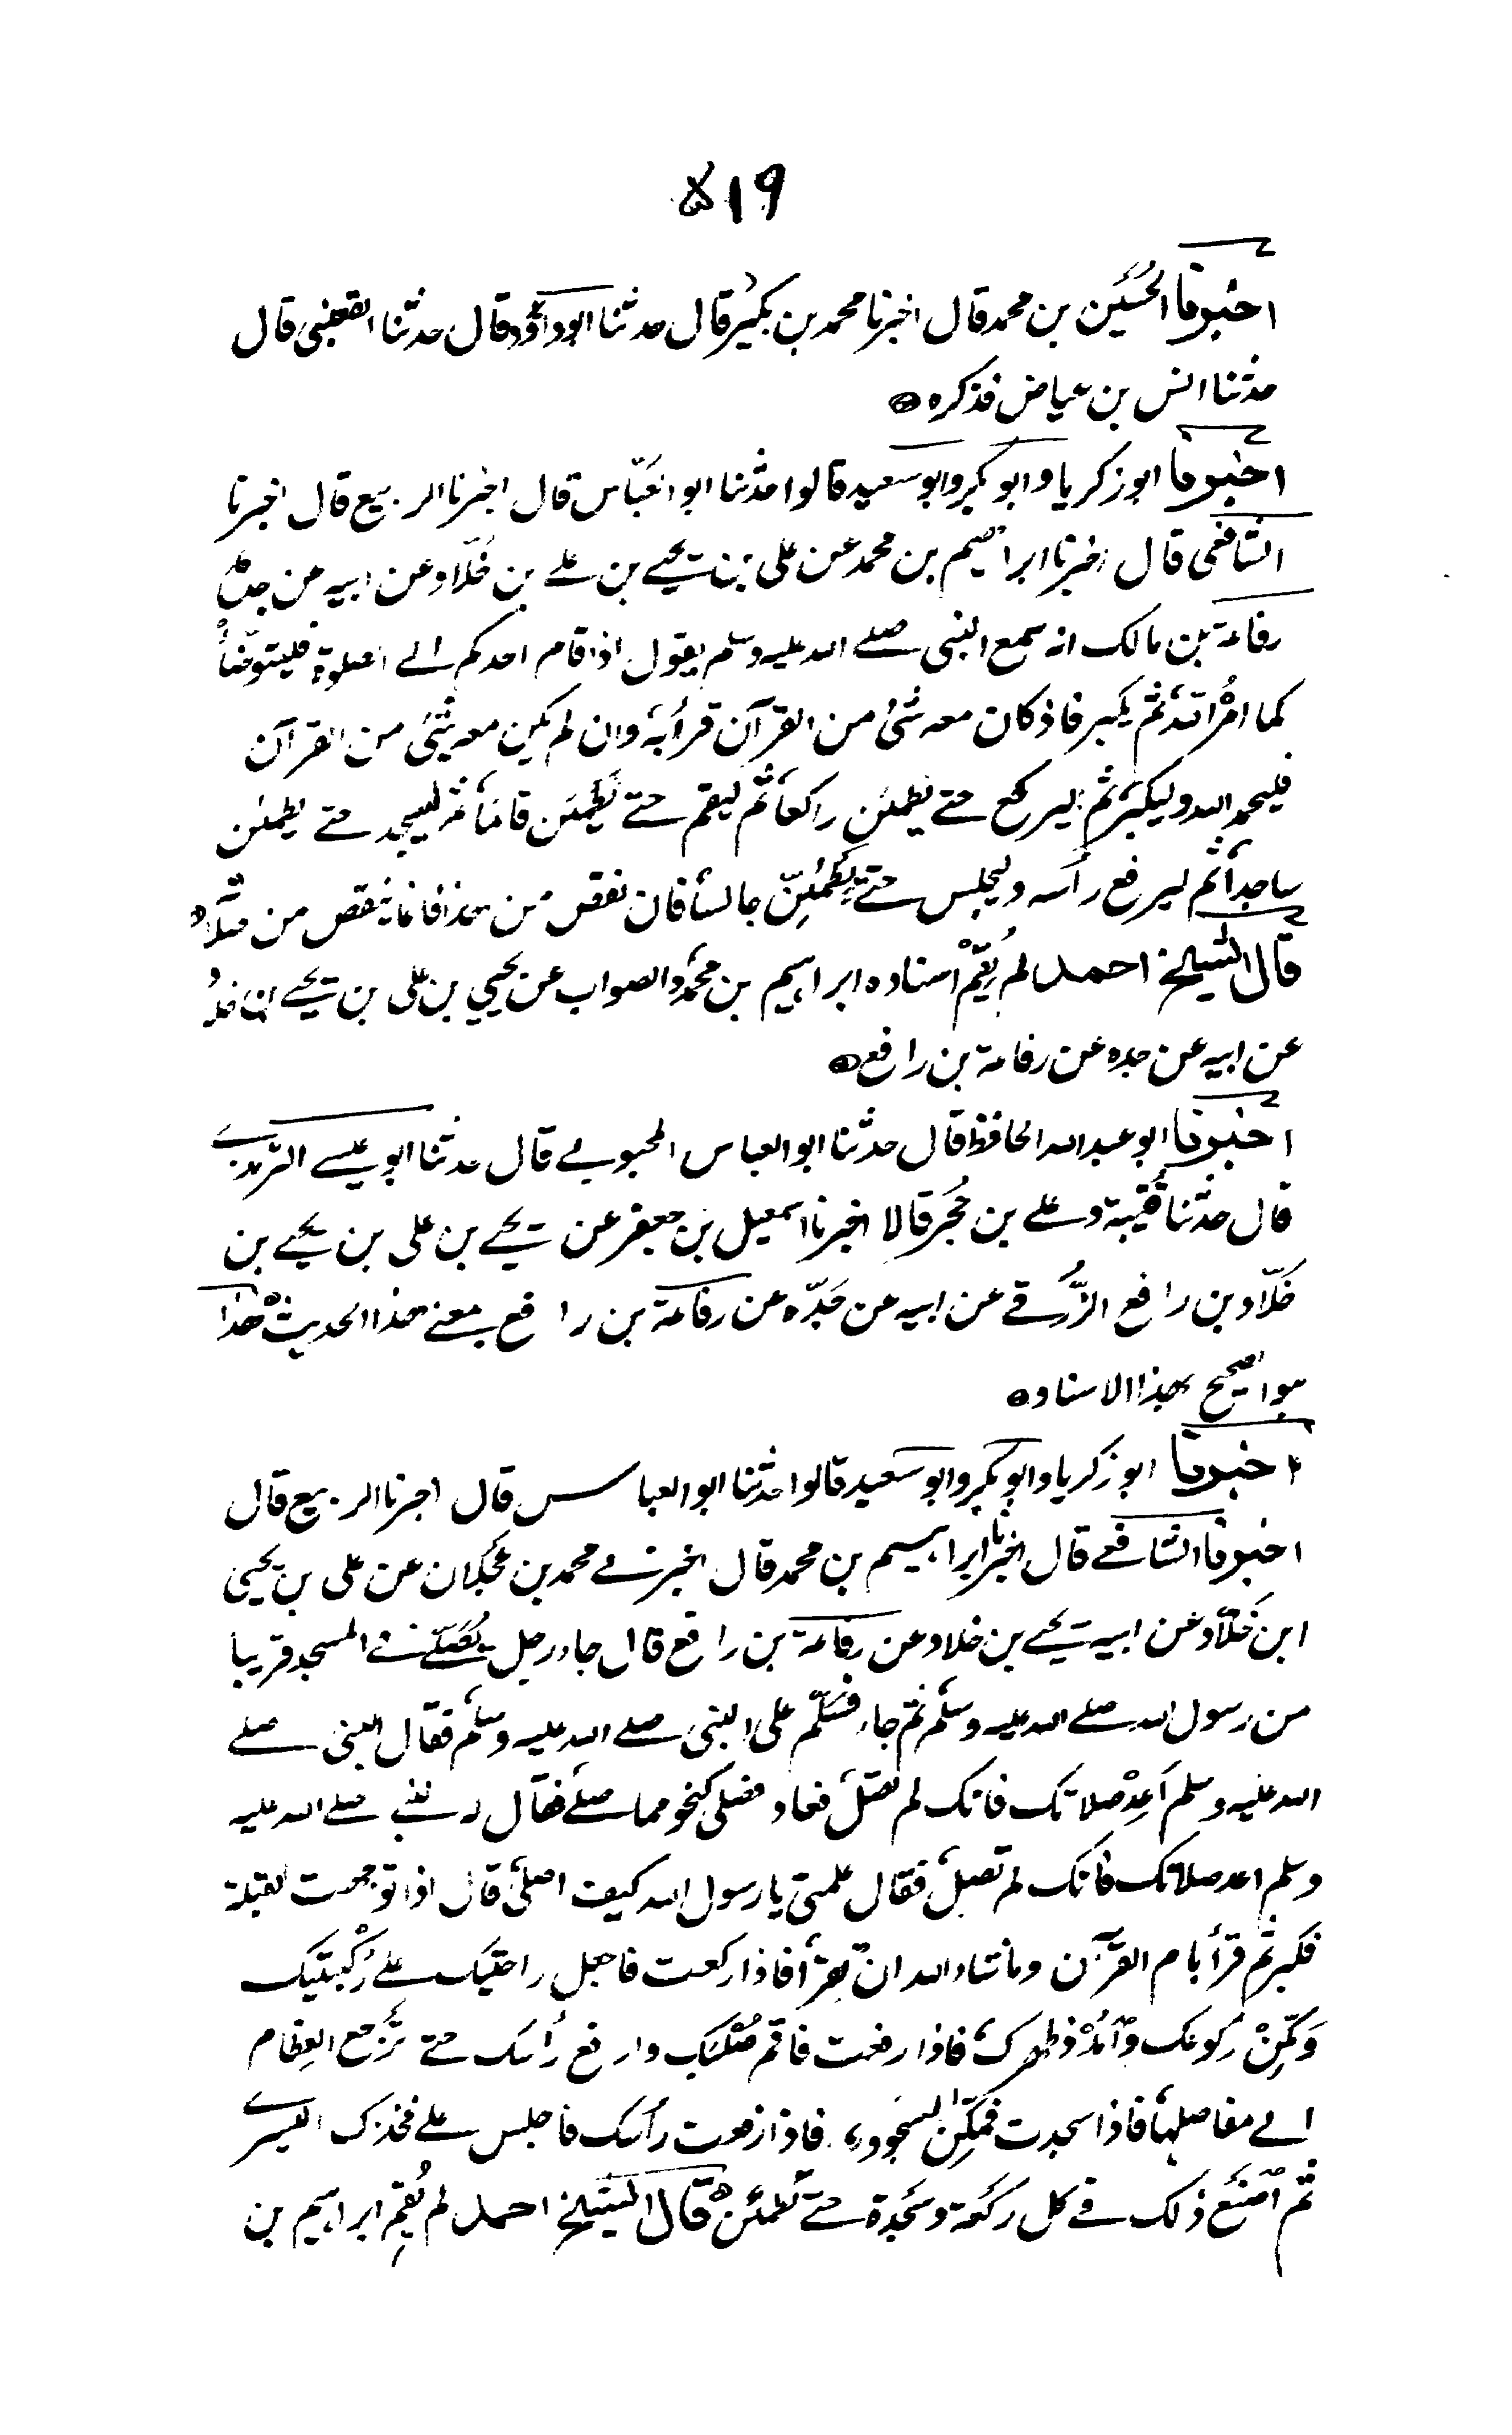 ۵۱۹
اخبرنا الحُسَين بن محمد قال اخبرنا محمد بن بكير قال حدثنا ابو داؤد قال حدثنا القعنبى قال
حدثنا انس بن عياض فذكره ٥
اخبرنا ابو زكريا وابو بكر وابو سعيد قالوا حدثنا ابو العبّاس قال اخبرنا الربيع قال اخبرنا
الشافعى قال اخبرنا ابراهيم بن محمد عن على بن يحيے بن علے بن خلّاد عن ابيه عن جده
رفاعة بن مالك انه سمع النبى صلے الله عليه وسلم يقول اذا قام احدكم الے الصلوة فليتوضأ
كما امره الله ثم يكبر فاذا كان معه شئ من القرآن قرأ به وان لم يكن معه شئ من القرآن
فليحمد الله وليكبر ثم ليركع حتے يطمئن راكعاً ثم ليقم حتے يطمئن قائماً ثم ليسجد حتے يطمئن
ساجداً ثم ليرفع رأسه وليجلس حتے يطمئنّ جالساً فان نقص من هذا فانما ينقص من صلاته
قال الشيخ احمد لم يُقِمْ اسناده ابراهيم بن محمد والصواب عن يحيي بن على بن يحيے بن خلاد
عن ابيه عن جده عن رفاعة بن رافع ٥
اخبرنا ابو عبد الله الحافظ قال حدثنا ابو العباس المحبوبے قال حدثنا ابو عيسے الترمذے
قال حدثنا قُتيبة وعلے بن حُجر قالا اخبرنا اسمعيل بن جعفر عن يحيے بن على بن يحيے بن
خلّاد بن رافع الزُّرقے عن ابيه عن جَدّه عن رفاعة بن رافع بمعنے هذا الحديث هذا
هو الصحيح بهذا الاسناد ٥
اخبرنا ابو زكريا وابو بكر وابو سعيد قالوا حدثنا ابو العباس قال اخبرنا الربيع قال
اخبرنا الشافعے قال اخبرنا ابراهيم بن محمد قال اخبرنے محمد بن عجلان عن على بن يحيى
ابن خَلّاد عن ابيه يحيے بن خلاد عن رفاعة بن رافع قال جاء رجل يُصَلّے فے المسجد قريبا
من رسول الله صلے الله عليه وسلم ثم جاء فسَلّم على النبى صلے الله عليه وسلم فقال النبى صلے
الله عليه وسلم أعِدْ صلاتك فانك لم تصل فعاد فصلى كنحو مما صلے فقال له النبے صلے الله عليه
وسلم اعد صلاتك فانك لم تصل فقال علمنى يا رسول الله كيف اصلى قال اذا توجهت القبلة
فكبر ثم قرأ بام القرآن وما شاء الله ان تقرأ فاذا ركعت فاجعل راحتيك علے رُكْبتيك
ومَكِّنْ ركوعك وامْدُدْ ظهرك فاذا رفعت فاقم صُلْبَك وارفع رأسك حتے تَرجع العِظام
الے مفاصلها فاذا سجدت فمَكِّن السجود فاذا رفعت رأسك فاجلس علے فخذك اليسرے
ثم اصنع ذلك فے كل ركعة وسجدة حتے تطمئن قال الشيخ احمد لم يُقِم ابراهيم بن